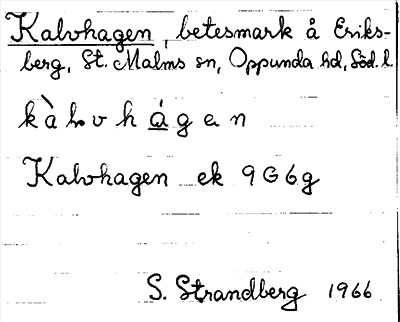 Kalvhagen, betesmark å Eriks-
berg, St. Malms sn, Oppunda hd, Söd. l.
kàlvhágen
Kalvhagen ek 9G6g
S. Strandberg 1966